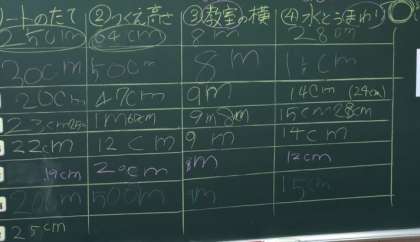 ートのたて ②つくえ高さ ③教室の横 ④水とうまわり
250cm 64cm 8m 28cm
30cm 50cm 8m 15cm
20cm 47cm 9m 14cm (24cm)
23cm 1m60cm 9m8m 15cm28cm
22cm 12cm 9m 14cm
19cm 20cm 8m 12cm
500m m 15cm
25cm